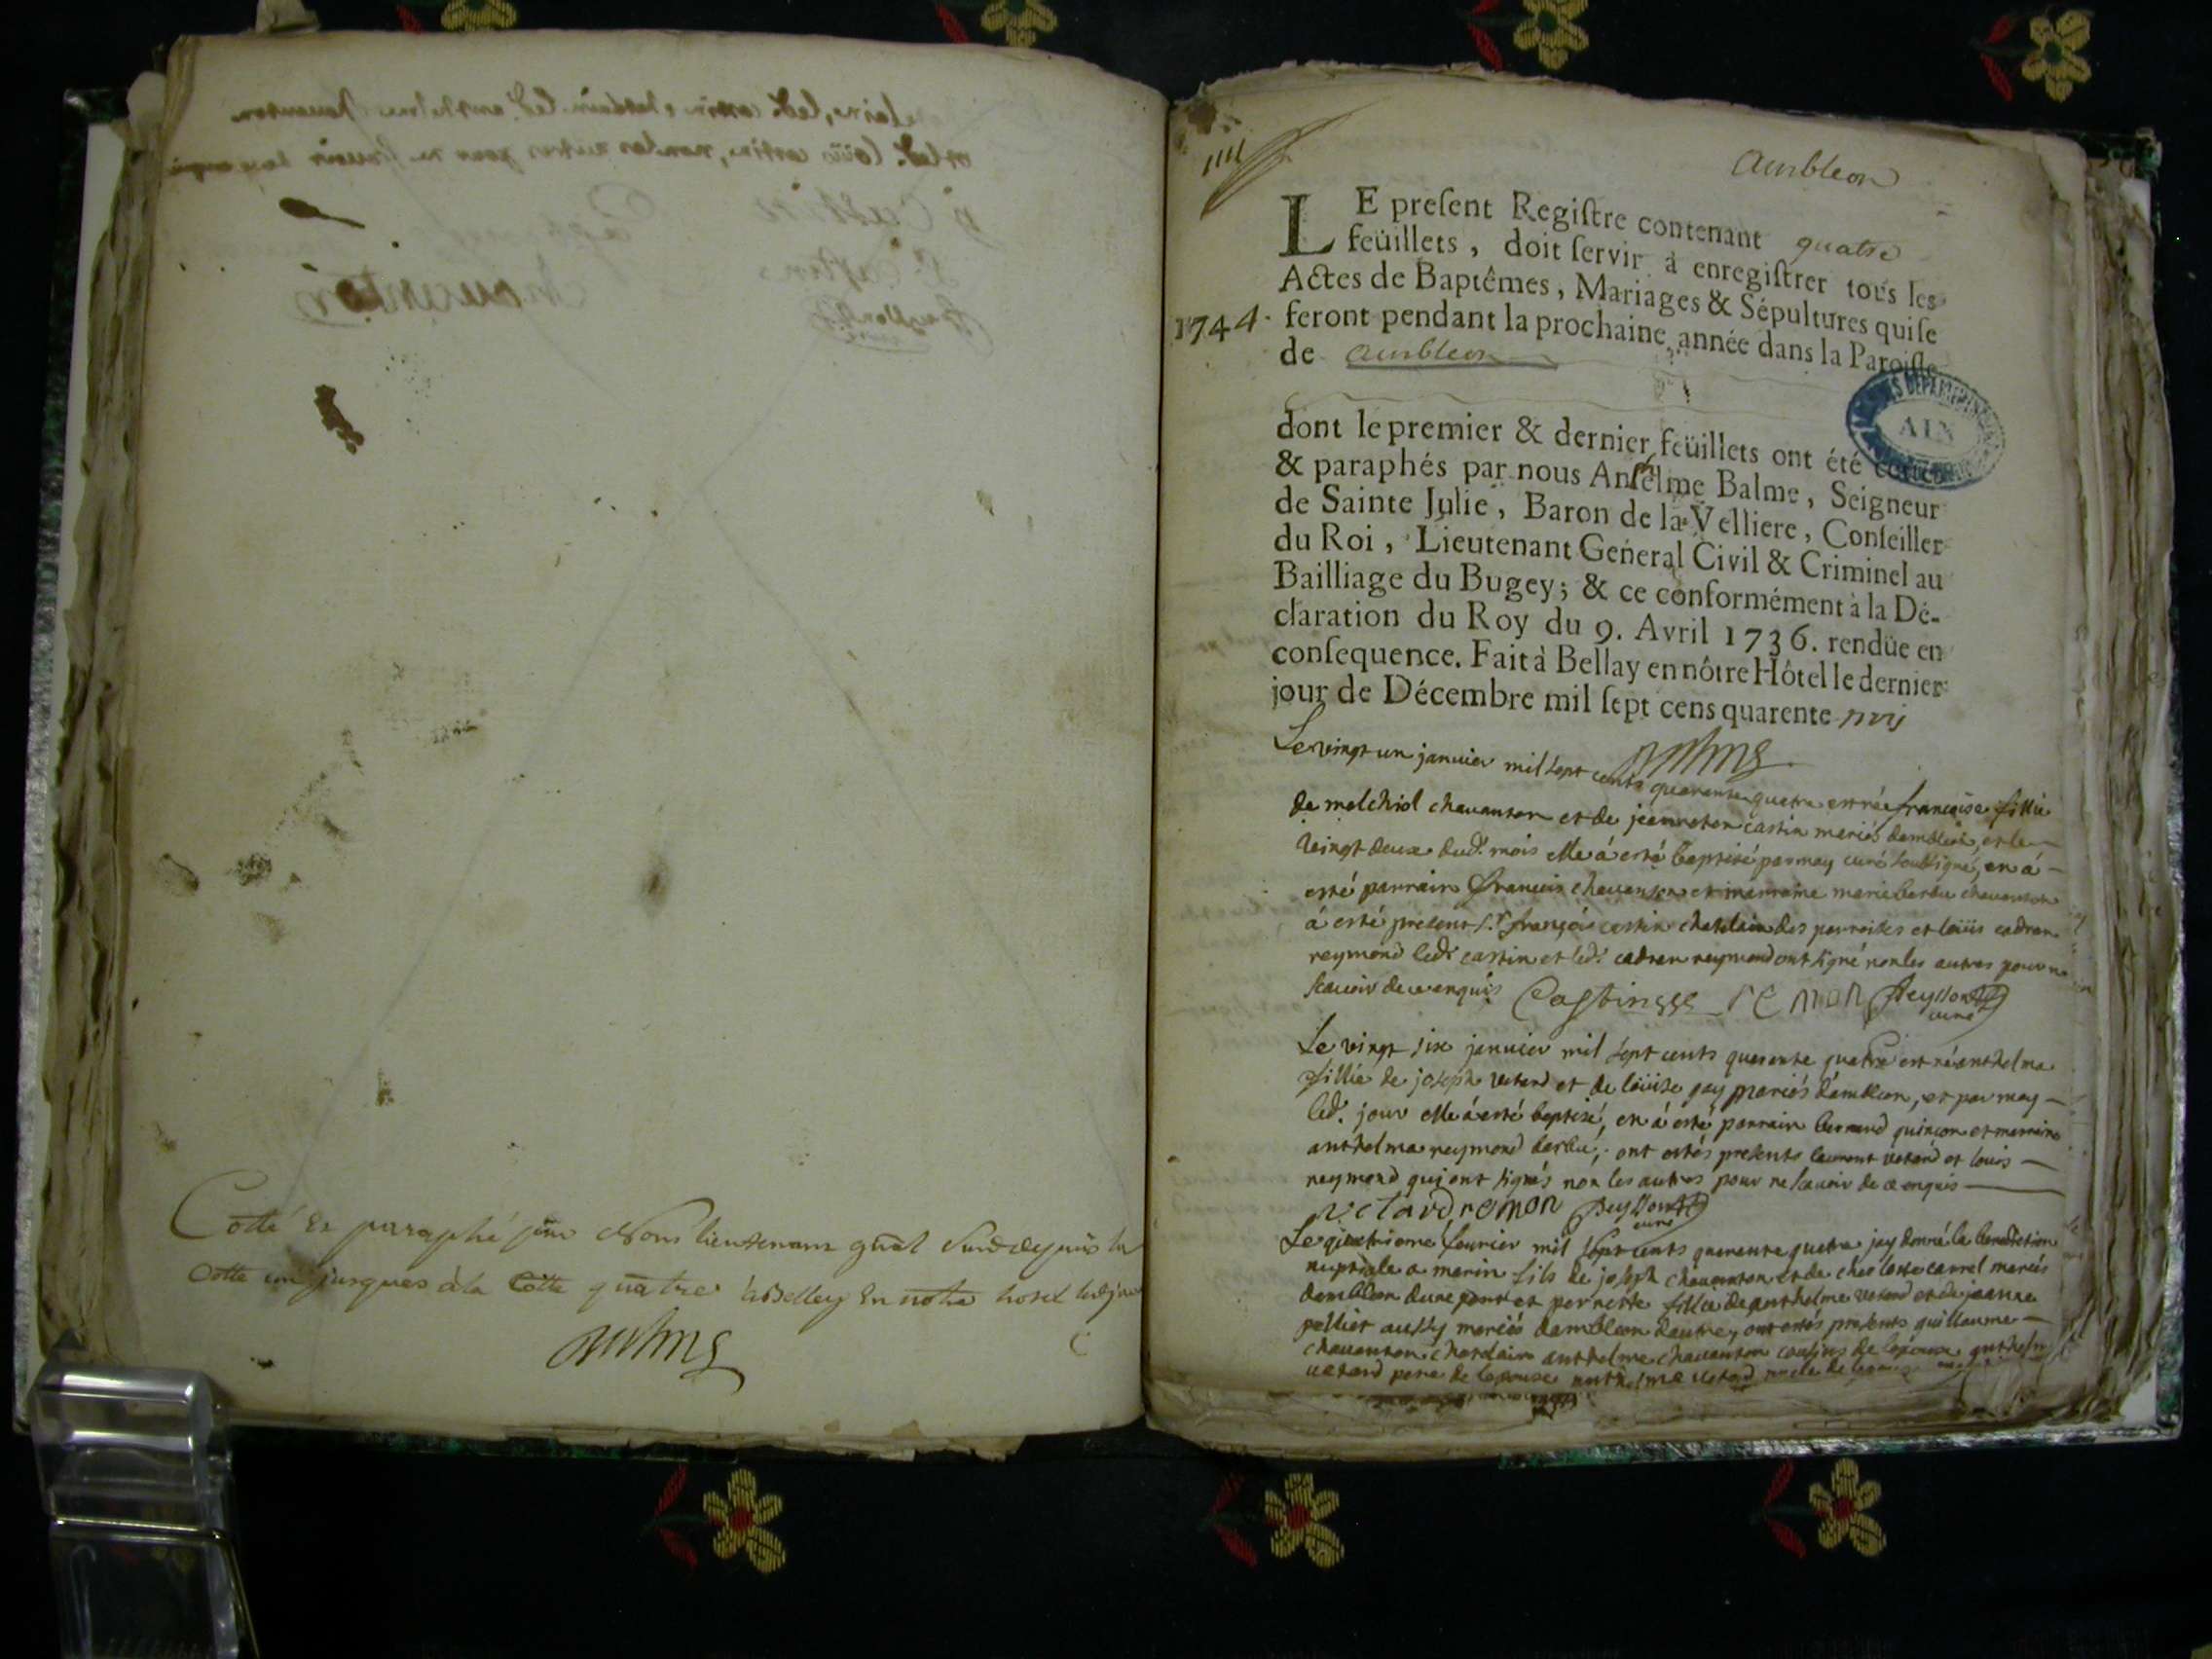 Cotté Et paraphé par Nous lieutenant gnāl Susd depuis la
Cotte un jusques à la Cotte quatre à Belley En notre hotel led jour
Ambleon
LE preſent Regiſtre contenant quatre
feüillets, doit ſervir à enregiſtrer tous les
Actes de Baptêmes, Mariages & Sépultures qui ſe
1744. feront pendant la prochaine année dans la Paroiſſe
de Ambleon
ARCHIVES DEPARTEMENTALES
AIN
dont le premier & dernier feüillets ont été
& paraphés par nous Anthelme Balme, Seigneur
de Sainte Julie, Baron de la Velliere, Conſeiller
du Roi, Lieutenant General Civil & Criminel au
Bailliage du Bugey; & ce conformément à la Dé-
claration du Roy du 9. Avril 1736. rendüe en
conſequence. Fait à Bellay en nôtre Hôtel le dernier
jour de Décembre mil ſept cens quarente trois
Le vingt un janvier mil sept cents quarente quatre est née francoise fillie
de melchiol chavanton et de jeanneton castin mariés dambleon, et le
vingt deux dud. mois elle á esté baptisé par moy curé soussigné, en á
esté parrain francois chavanton et marraine marie barbu chavanton
á esté present sr. françois castin chatelain des parroises et loüis cadran
reymond led. castin et led. cadran reymond ont signé non les autres pour ne
scavoir de ce enquis Castin remon Peysson curé
Le vingt six janvier mil sept cents quarente quatre est né anthelma
fillie de joseph vetard et de loüise gay mariés d'ambleon, et par moy
led. jour elle á esté baptisé, en á esté parrain bernard quinçon et marraine
anthelma reymond barbu, ont estés presents laurent vetard et louis
reymond qui ont signés non les autres pour ne scavoir de ce enquis
vetard remon Peysson curé
Le quatrieme fevrier mil sept cents quarente quatre jay donné la benediction
nuptiale a marin fils de joseph chavanton et de charlotte carrel mariés
dambleon dune part et perrette fillie de anthelme vetard et de jeanne
pellier aussy mariés dambleon dautre, ont estés presents guillaume
chavanton chatelain anthelme chavanton cousins de lepoux anthelme
vetard pere de lepouse anthelme vetard oncle de lepouse